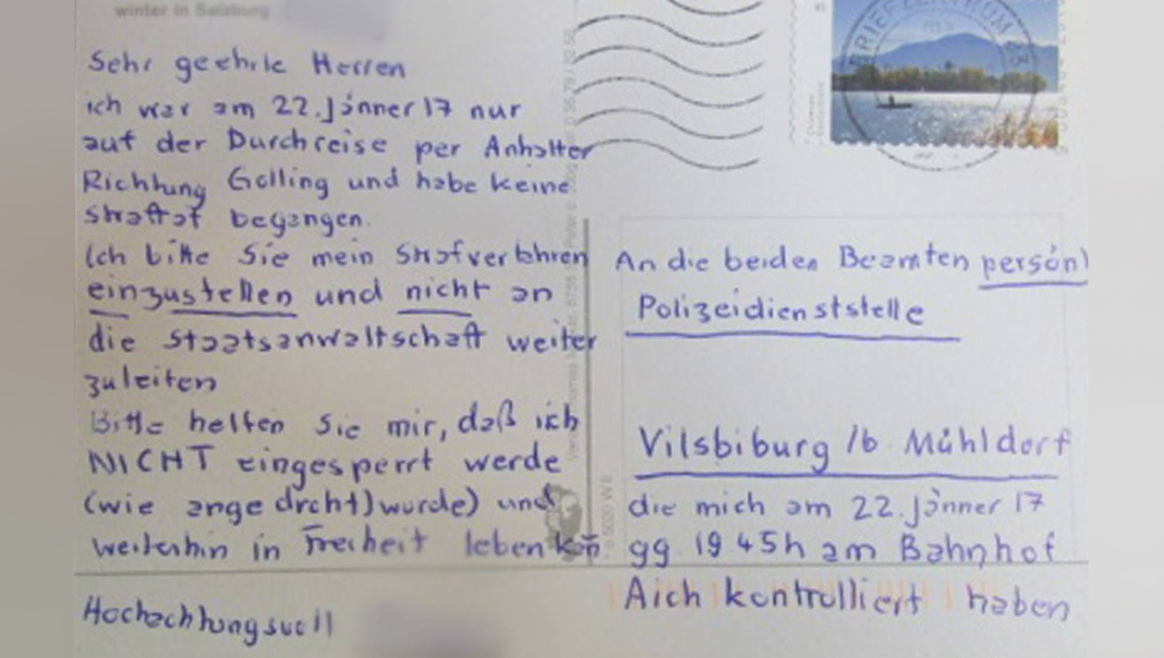 winter in Salzburg
Sehr geehrte Herren
ich war am 22. Jänner 17 nur
auf der Durchreise per Anhalter
Richtung Golling und habe keine
Straftat begangen.
Ich bitte Sie mein Strafverfahren
einzustellen und nicht an
die Staatsanwaltschaft weiter
zuleiten
Bitte helfen Sie mir, daß ich
NICHT eingesperrt werde
(wie angedroht) wurde) und
weiterhin in Freiheit leben kañ
Hochachtungsvoll
BRIEFZENTRUM
An die beiden Beamten persönl
Polizeidienststelle
Vilsbiburg /b Mühldorf
die mich am 22. Jänner 17
gg 19 45h am Bahnhof
Aich kontrolliert haben